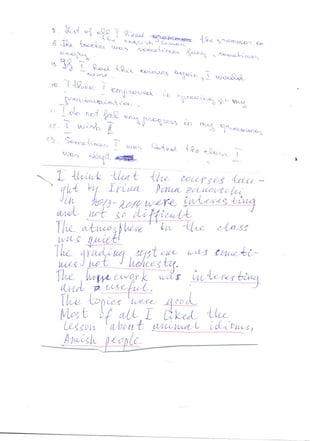 5. List of all I liked the grammar on
the english lesson
6. The teacher was sometimes funny, sometimes
angry.
9. If I had this course again, I would
10. I think I improved in speaking in my
pronunciation.
11. I do not feel any progress in my grammar
12. I wish I
13. Sometimes I was
was
I think that the courses tau-
ght by Irina
in 2013-2014 were interesting
and not so difficult
The atmosphere in the class
was quiet
The grading system was someti-
mes not honestly.
The homework was interesting
and useful.
The topics were good
Most of all I liked the
lesson about animal idioms,
Amish people